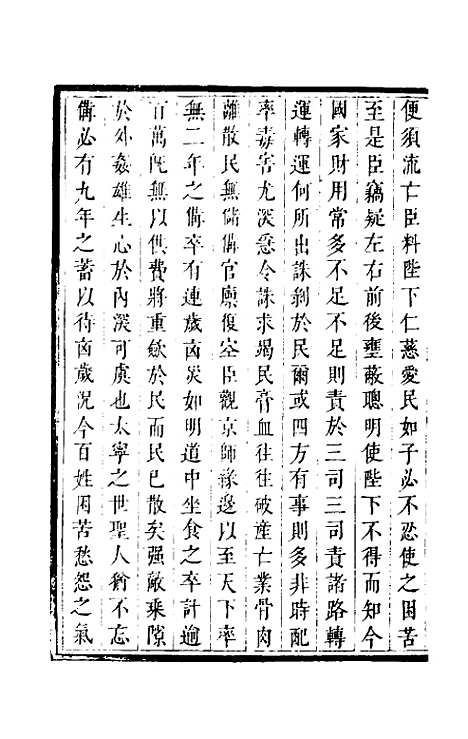 便須流亡臣料陛下仁慈愛民如子必不忍使之困苦
至是臣竊疑左右前後壅蔽聰明使陛下不得而知今
國家財用常多不足不足則責於三司三司責諸路轉
運轉運何所出誅剥於民爾或四方有事則多非時配
率毒害尤深急令誅求竭民膏血往往破産亡業骨肉
離散民無儲備官廪復空臣觀京師緣邊以至天下率
無二年之備卒有連歲凶災如明道中坐食之卒計逾
百萬旣無以供費將重歛於民而民已散矣强敵乘隙
於外姦雄生心於内深可虞也太寧之世聖人猶不忘
備必有九年之蓄以待凶歲况今百姓困苦愁怨之氣